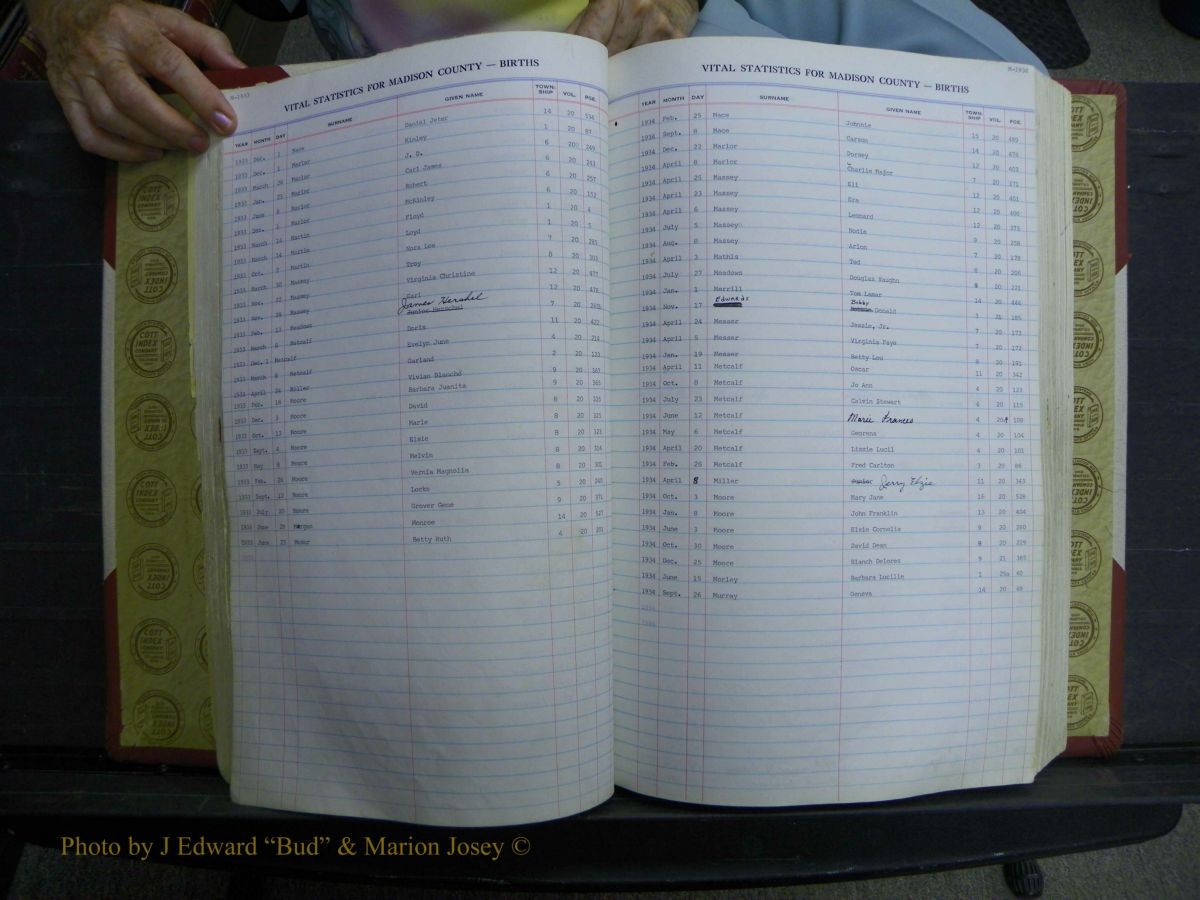 M-1933
VITAL STATISTICS FOR MADISON COUNTY — BIRTHS
YEAR MONTH DAY SURNAME GIVEN NAME TOWN-SHIP VOL. PGE.
1933 Dec. 1 Mace Daniel Jeter 14 20 534
1933 Dec. 1 Marler Kinley 1 20 87
1933 March 26 Marler J. D. 6 20 249
1933 Jan. 25 Marler Carl James 6 20 243
1933 June 8 Marler Robert 6 20 257
1933 Dec. 1 Marlor McKinley 6 20 152
1933 March 14 Martin Floyd 1 20 4
1933 March 14 Martin Loyd 1 20 5
1933 Oct. 2 Martin Nora Lee 7 20 285
1933 March 30 Massey Troy 8 20 303
1933 Nov. 22 Massey Virginia Christine 12 20 477
1933 Nov. 28 Massey Carl 12 20 476
James Hershel
1933 Feb. 13 Meadows Junior Herschel 7 20
1933 March 6 Metcalf Doris 11 20 422
1933 Dec. 1 Metcalf Evelyn June 4 20 214
1933 March 8 Metcalf Garland 2 20 121
1933 April 24 Miller Vivian Blanche 9 20 367
1933 Feb. 16 Moore Barbara Juanita 9 20 365
1933 Dec. 3 Moore David 8 20 335
1933 Oct. 13 Moore Marie 8 20 325
1933 Sept. 4 Moore Elsie 8 20 323
1933 May 8 Moore Melvin 8 20 314
1933 Feb. 26 Moore Vernia Magnolia 8 20 301
1933 Sept. 12 Moore Locke 5 20 240
1933 July 20 Moore Grover Gene 9 20 371
1933 June 29 Morgan Monroe 14 20 527
1933 June 23 Moser Betty Ruth 4 20 201
1933
M-1934
VITAL STATISTICS FOR MADISON COUNTY — BIRTHS
YEAR MONTH DAY SURNAME GIVEN NAME TOWN-SHIP VOL. PGE.
1934 Feb. 25 Mace Johnnie 15 20 489
1934 Sept. 8 Mace Carson 14 20 476
1934 Dec. 22 Marlor Dorsey 12 20 403
1934 April 8 Marlor Charlie Major 7 20 171
1934 April 25 Massey Eli 12 20 401
1934 April 23 Massey Era 12 20 400
1934 April 6 Massey Leonard 12 20 375
1934 July 5 Massey Nodie 9 20 258
1934 Aug. 8 Massey Arlon 7 20 178
1934 April 3 Mathis Ted 8 20 206
1934 July 27 Meadows Douglas Vaughn 8 20 221
1934 Jan. 1 Merrill Tom Lamar 14 20 444
1934 Nov. 17 Edwards Bobby Donald 3 21 185
1934 April 24 Messer Jessie, Jr. 7 20 173
1934 April 5 Messer Virginia Faye 7 20 172
1934 Jan. 19 Messer Betty Lou 8 20 191
1934 April 11 Metcalf Oscar 11 20 342
1934 Oct. 8 Metcalf Jo Ann 4 20 123
1934 July 23 Metcalf Calvin Stewart 4 20 115
1934 June 12 Metcalf Marie Frances 4 20A 108
1934 May 6 Metcalf Georena 4 20 104
1934 April 20 Metcalf Lizzie Lucil 4 20 101
1934 Feb. 26 Metcalf Fred Carlton 3 20 86
1934 April 8 Miller Junior Jerry Elzie 11 20 343
1934 Oct. 3 Moore Mary Jane 16 20 528
1934 Jan. 8 Moore John Franklin 13 20 404
1934 June 3 Moore Elzie Cornelia 9 20 260
1934 Oct. 30 Moore David Dean 8 20 229
1934 Dec. 25 Moore Blanch Delores 9 21 365
1934 June 15 Morley Barbara Lucille 1 20a 40
1934 Sept. 26 Murray Geneva 14 20 49
1934
COTT INDEX COMPANY
Photo by J Edward “Bud” & Marion Josey ©